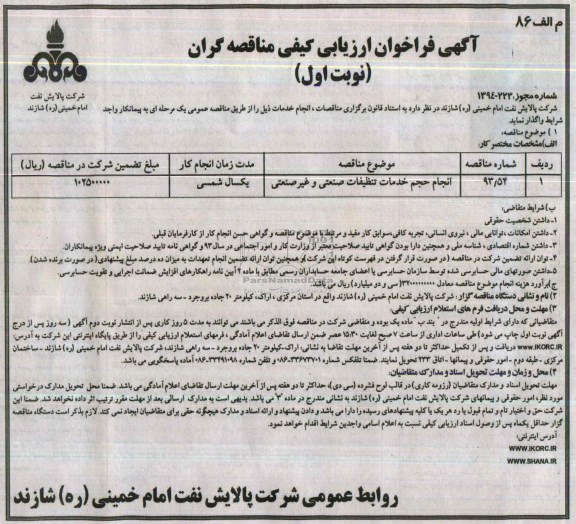 م الف ۸۶
آگهی فراخوان ارزیابی کیفی مناقصه گران
(نوبت اول)
شرکت پالایش نفت
امام خمینی (ره) شازند
شماره مجوز: ۱۳۹۴۰۲۲۳
شرکت پالایش نفت امام خمینی (ره) شازند در نظر دارد به استناد قانون برگزاری مناقصات ، انجام خدمات ذیل را از طریق مناقصه عمومی یک مرحله ای به پیمانکار واجد
شرایط واگذار نماید.
۱ ) موضوع مناقصه:
الف) مشخصات مختصر کار:
ردیف شماره مناقصه موضوع مناقصه مدت زمان انجام کار مبلغ تضمین شرکت در مناقصه (ریال)
۱ ۹۳/۵۴ انجام حجم خدمات تنظیفات صنعتی و غیرصنعتی یکسال شمسی ۱۰۲۵۰۰۰۰۰
ب) شرایط متقاضی:
۱ـ داشتن شخصیت حقوقی
۲ـ داشتن امکانات ،توانایی مالی ، نیروی انسانی، تجربه کافی،سوابق کار مفید و مرتبط با موضوع مناقصه و گواهی حسن انجام کار از کارفرمایان قبلی.
۳ـ داشتن شماره اقتصادی ، شناسه ملی و همچنین دارا بودن گواهی تایید صلاحیت معتبر از وزارت کار و امور اجتماعی در سال ۹۳ و گواهی نامه تایید صلاحیت ایمنی ویژه پیمانکاران.
۴ـ توان ارائه تضمین شرکت در مناقصه (در صورت قرار گرفتن در فهرست کوتاه این شرکت) و همچنین توان ارائه تضمین انجام تعهدات به میزان ده درصد مبلغ پیشنهادی (در صورت برنده شدن).
۵ـ داشتن صورتهای مالی حسابرسی شده توسط سازمان حسابرسی یا اعضای جامعه حسابداران رسمی مطابق با ماده ۲ آیین نامه راهکارهای افزایش ضمانت اجرایی و تقویت حسابرسی.
ج) برآورد هزینه انجام موضوع مناقصه معادل (سی و دو میلیارد) ریال می باشد.
۲) نام و نشانی دستگاه مناقصه گزار: شرکت پالایش نفت امام خمینی (ره) شازند واقع در استان مرکزی ، اراک، کیلومتر ۲۰ جاده بروجرد - سه راهی شازند
۳ ) مهلت و محل دریافت فرم های استعلام ارزیابی کیفی:
متقاضیانی که دارای شرایط اولیه مندرج در " بند ب " ماده یک بوده و متقاضی شرکت در مناقصه فوق الذکر می باشند می توانند به مدت ۵ روز کاری پس از انتشار نوبت دوم آگهی ( سه روز پس از درج
آگهی نوبت اول چاپ می شود) طی ساعات اداری از ساعت ۷ صبح لغایت ۱۵:۳۰ عصر ضمن ارسال تقاضای اعلام آمادگی ، فرمهای استعلام ارزیابی کیفی را از طریق پایگاه اینترنتی این شرکت به آدرس:
WWW.IKORC.IR دریافت و پس از تکمیل حداکثر تا دو هفته پس از آخرین مهلت تقاضا به نشانی: اراک،کیلومتر ۲۰ جاده بروجرد - سه راهی شازند، شرکت پالایش نفت امام خمینی (ره) شازند - ساختمان
مرکزی - طبقه دوم - امور حقوقی و پیمانها - اتاق ۲۳۳ تحویل نمایند. ضمنا تلفکس شماره ۳۳۶۷۳۷۰۱-۰۸۶ و تلفن شماره ۳۳۴۹۱۰۹۸-۰۸۶ آماده پاسخگویی می باشد.
۴) محل و زمان و مهلت تحویل اسناد و مدارک متقاضیان:
مهلت تحویل اسناد و مدارک متقاضیان (رزومه کاری) در قالب لوح فشرده (سی دی)، حداکثر تا دو هفته پس از آخرین مهلت ارسال تقاضای اعلام آمادگی می باشد. ضمنا محل تحویل مدارک درخواستی
مورد نظر، امور حقوقی و پیمانهای شرکت پالایش نفت امام خمینی (ره) شازند به نشانی مندرج در ماده "۳" می باشد. بدیهی است به مدارک ارسالی بعد از مهلت مقرر ترتیب اثر داده نخواهد شد. ضمنا این
شرکت حق و اختیار تام و تمام قبول یا رد هر یک یا کلیه پیشنهادهای رسیده را دارا می باشد و دادن پیشنهاد و ارائه اسناد و مدارک هیچگونه حقی برای متقاضیان ایجاد نمی کند. لازم بذکر است دستگاه مناقصه
گزار حداقل یکماه پس از وصول اسناد ارزیابی کیفی نسبت به اعلام اسامی واجدین شرایط اقدام خواهد نمود.
آدرس اینترنتی:
WWW.IKORC.IR
WWW.SHANA.IR
روابط عمومی شرکت پالایش نفت امام خمینی (ره) شازند
ParsNamadData